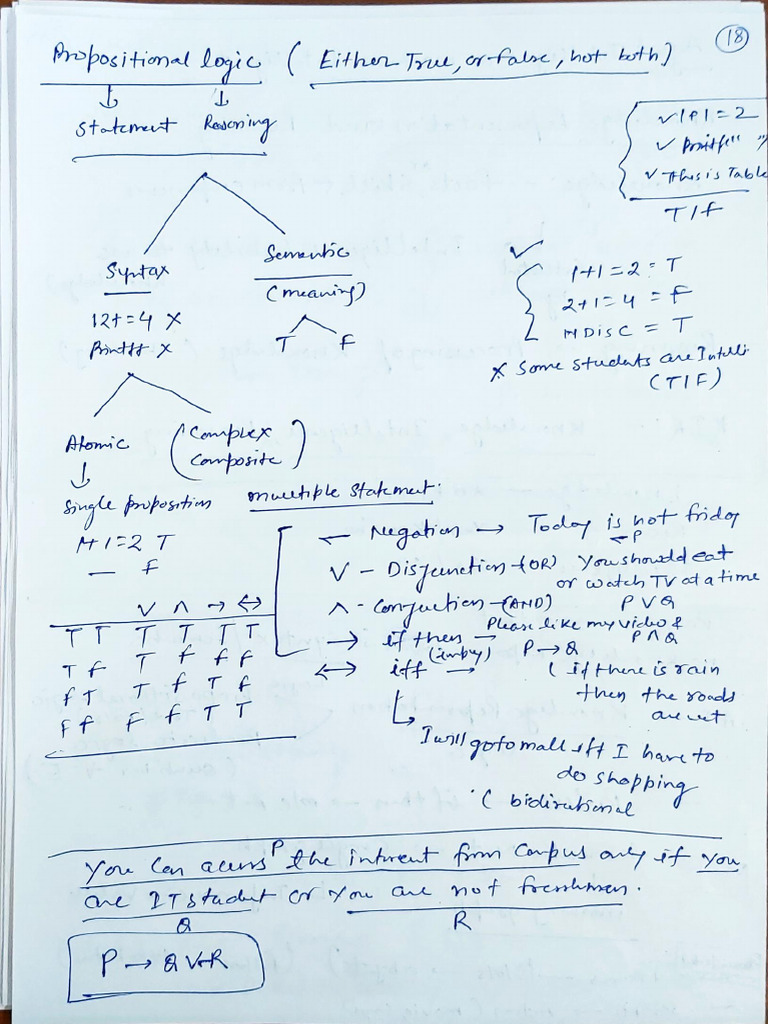 18
Propositional logic ( Either True, or false, not both)
↓ ↓
Statement Reasoning
✓ 1+1=2
✓ Printf(" "
✓ This is Table
T/F
Syntax
12+=4 X
X
Semantic
(meaning)
T F
✓
1+1=2 = T
2+1=4 = F
= T
X Some students are Intelli
(T/F)
Atomic
↓
Single proposition
1+1=2 T
— F
(Complex
Composite)
multiple statement:
← Negation → Today is not friday
←P
V - Disjunction (OR) You should eat
or watch TV at a time
P V Q
Λ - Conjuction - (AND) Please like my video &
P Λ Q
→ if then → P → Q
(imply)
( if there is rain
then the roads
are wet
↔ iff →
I will go to mall iff I have to
do shopping
( bidirational
V Λ → ↔
T T T T T T
T F T F F F
F T T F T F
F F F F T T
You can acess the internet from Campus only if you
P
are IT student or you are not freshman.
Q R
P → Q V ¬R